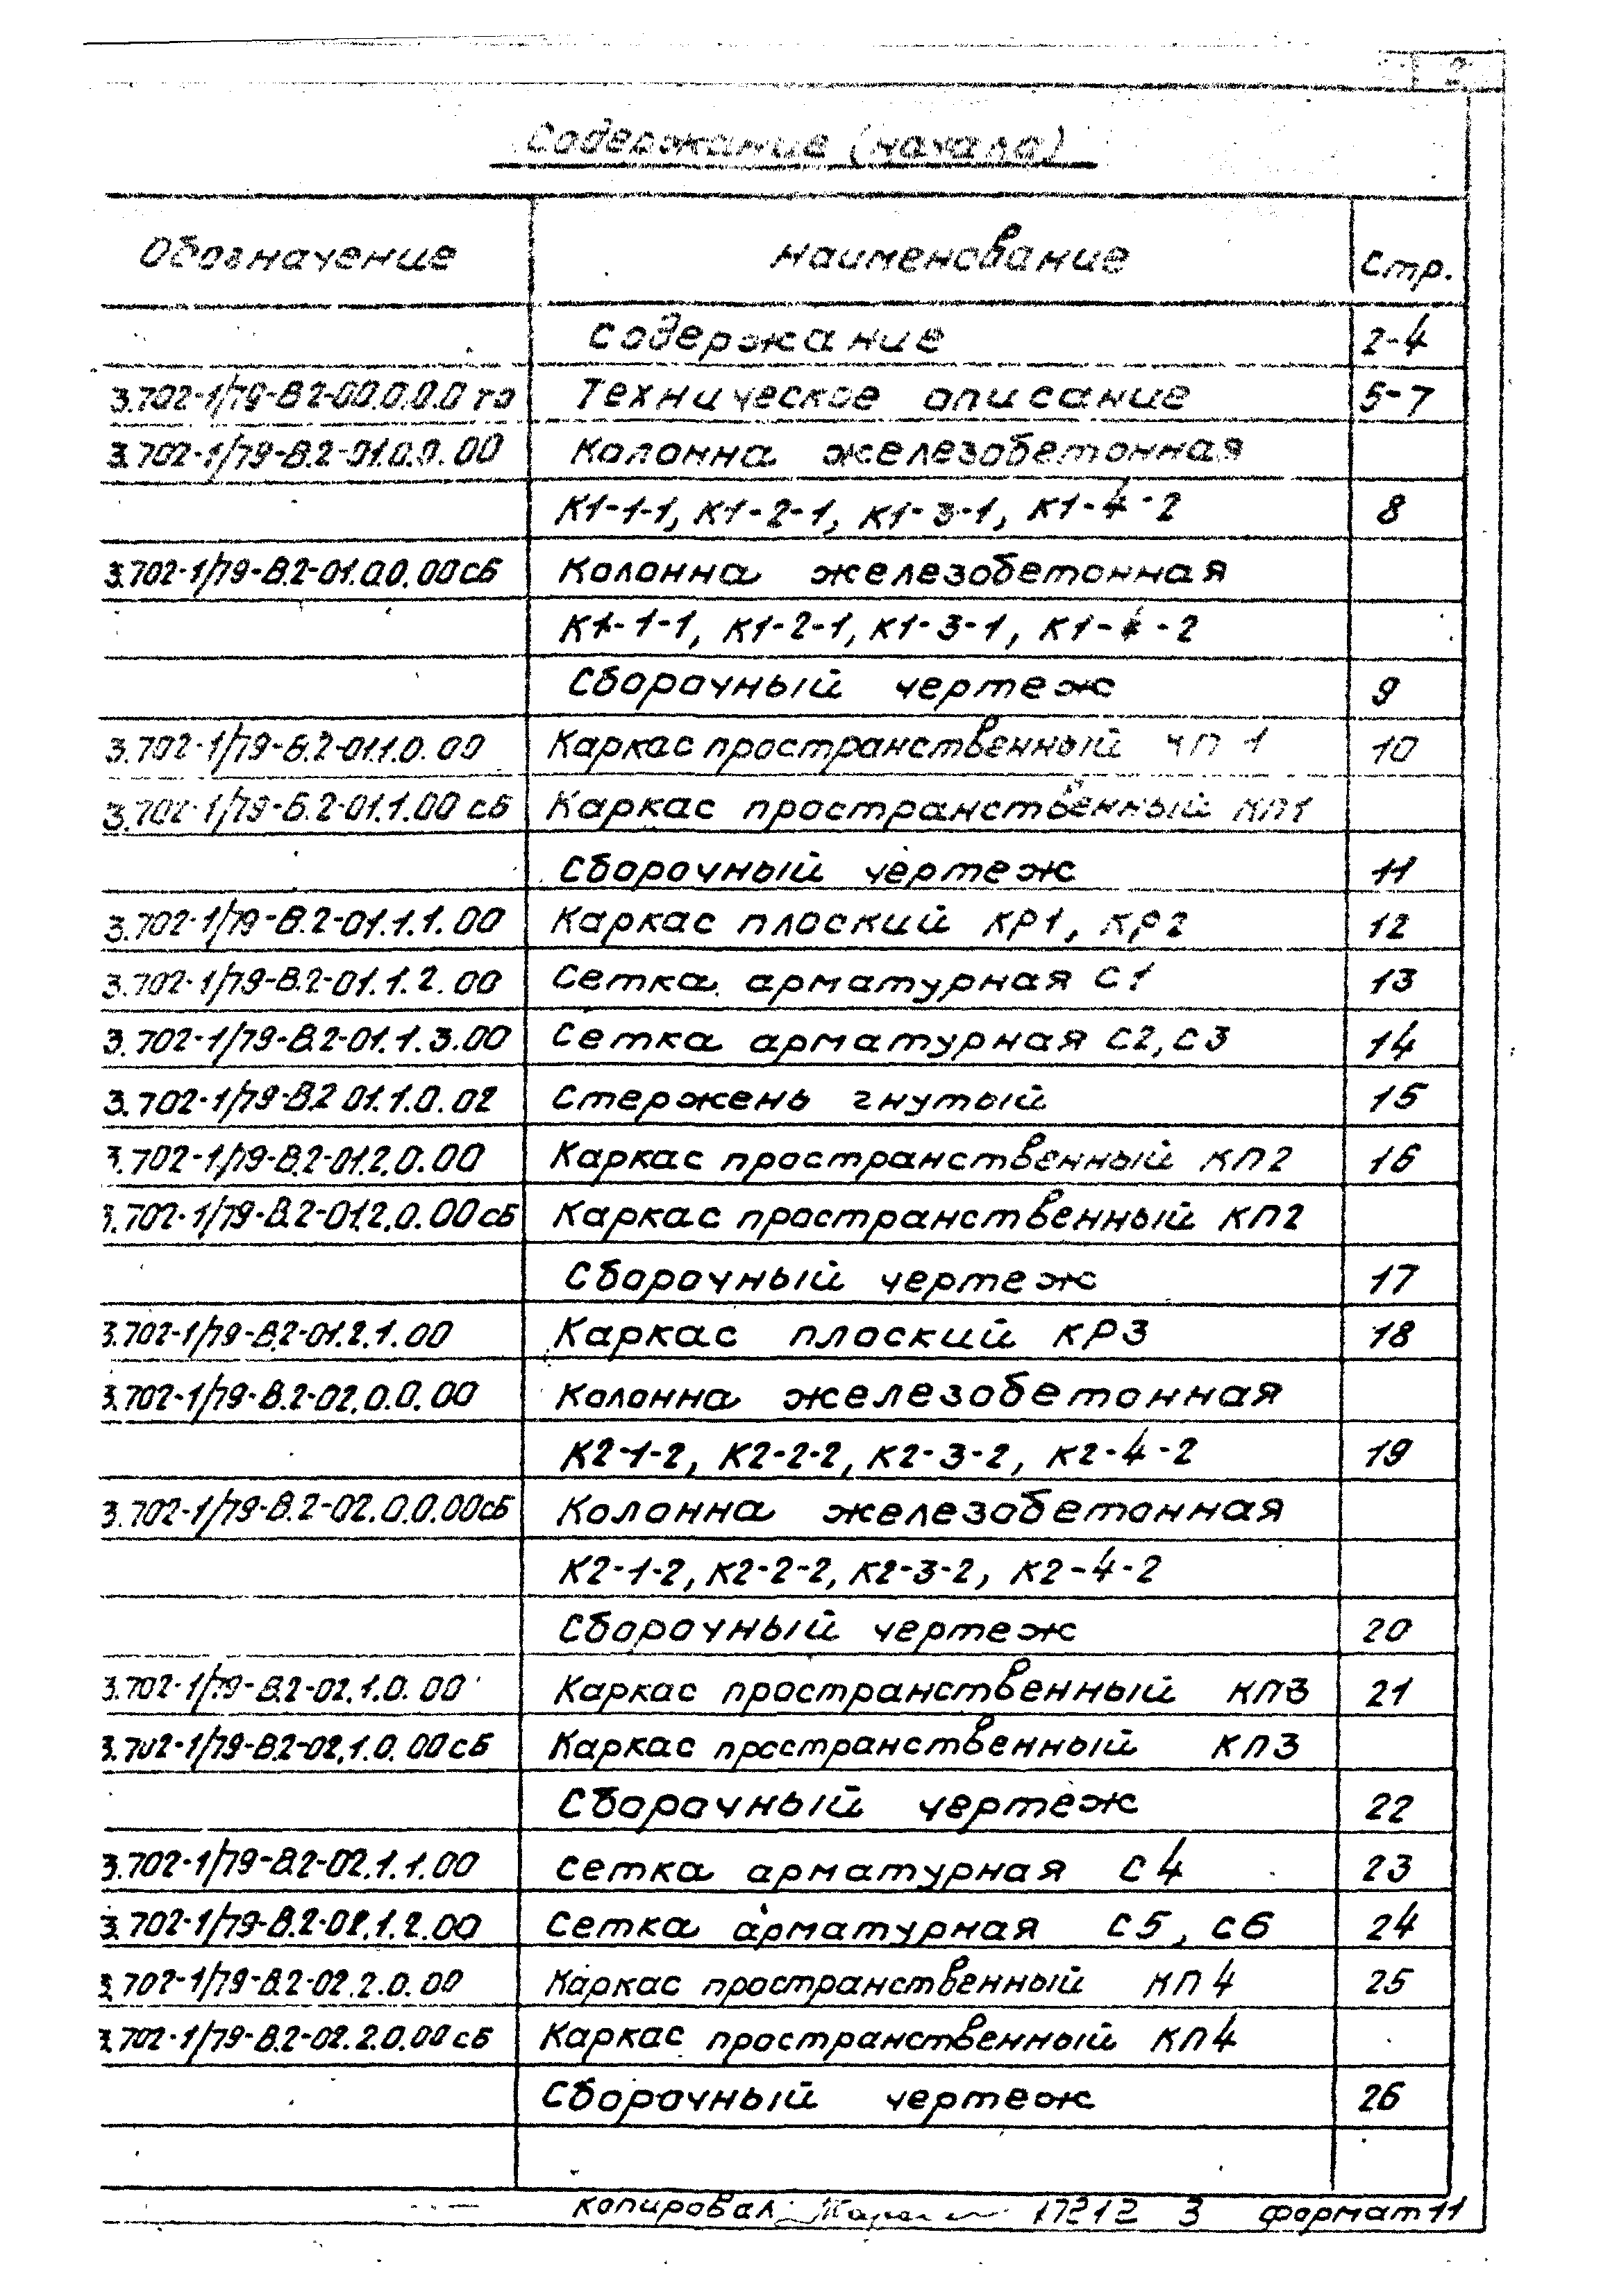 2
Содержание (начало)
Обозначение Наименование Стр.
Содержание 2-4
3.702-1/79-В2-00.0.0.0 ТО Техническое описание 5-7
3.702-1/79-В.2-01.0.0.00 Колонна железобетонная
К1-1-1, К1-2-1, К1-3-1, К1-4-2 8
3.702-1/79-В.2-01.0.0.00СБ Колонна железобетонная
К1-1-1, К1-2-1, К1-3-1, К1-4-2
Сборочный чертеж 9
3.702-1/79-В.2-01.1.0.00 Каркас пространственный КП 1 10
3.702-1/79-В.2-01.1.00 СБ Каркас пространственный КП1
Сборочный чертеж 11
3.702-1/79-В.2-01.1.1.00 Каркас плоский КР1, КР2 12
3.702-1/79-В.2-01.1.2.00 Сетка арматурная С1 13
3.702-1/79-В.2-01.1.3.00 Сетка арматурная С2, С3 14
3.702-1/79-В.2 01.1.0.02 Стержень гнутый 15
3.702-1/79-В.2-01.2.0.00 Каркас пространственный КП2 16
3.702-1/79-В.2-01.2.0.00СБ Каркас пространственный КП2
Сборочный чертеж 17
3.702-1/79-В.2-01.2.1.00 Каркас плоский КР3 18
3.702-1/79-В.2-02.0.0.00 Колонна железобетонная
К2-1-2, К2-2-2, К2-3-2, К2-4-2 19
3.702-1/79-В.2-02.0.0.00СБ Колонна железобетонная
К2-1-2, К2-2-2, К2-3-2, К2-4-2
Сборочный чертеж 20
3.702-1/79-В.2-02.1.0.00 Каркас пространственный КП3 21
3.702-1/79-В.2-02.1.0.00СБ Каркас пространственный КП3
Сборочный чертеж 22
3.702-1/79-В.2-02.1.1.00 Сетка арматурная С4 23
3.702-1/79-В.2-02.1.2.00 Сетка арматурная С5, С6 24
3.702-1/79-В.2-02.2.0.00 Каркас пространственный КП4 25
3.702-1/79-В.2-02.2.0.00СБ Каркас пространственный КП4
Сборочный чертеж 26
копировал: 17212 3 формат 11